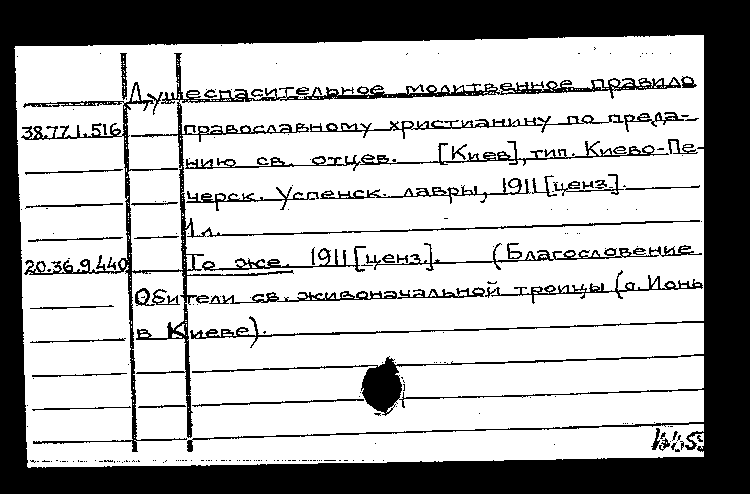 Душеспасительное молитвенное правило
38.77.1.516 православному христианину по преда-
нию св. отцев. [Киев], тип. Киево-Пе-
черск. Успенск. лавры, 1911 [ценз.].
1 л.
20.36.9.440 То же. 1911 [ценз.]. (Благословение
Обители св. живоначальной троицы (о. Ионы
в Киеве).